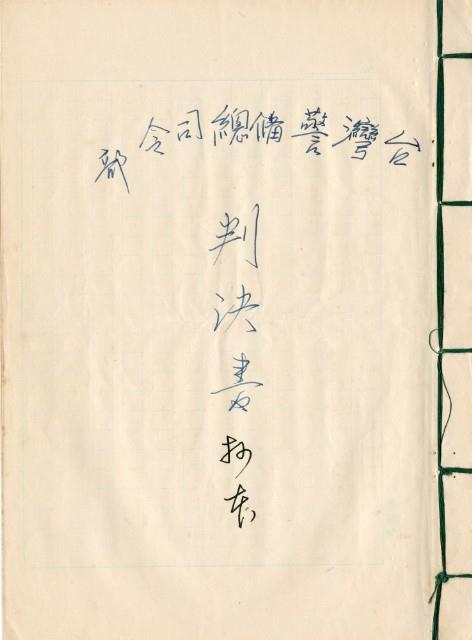 台灣警備總司令部
判決書抄本